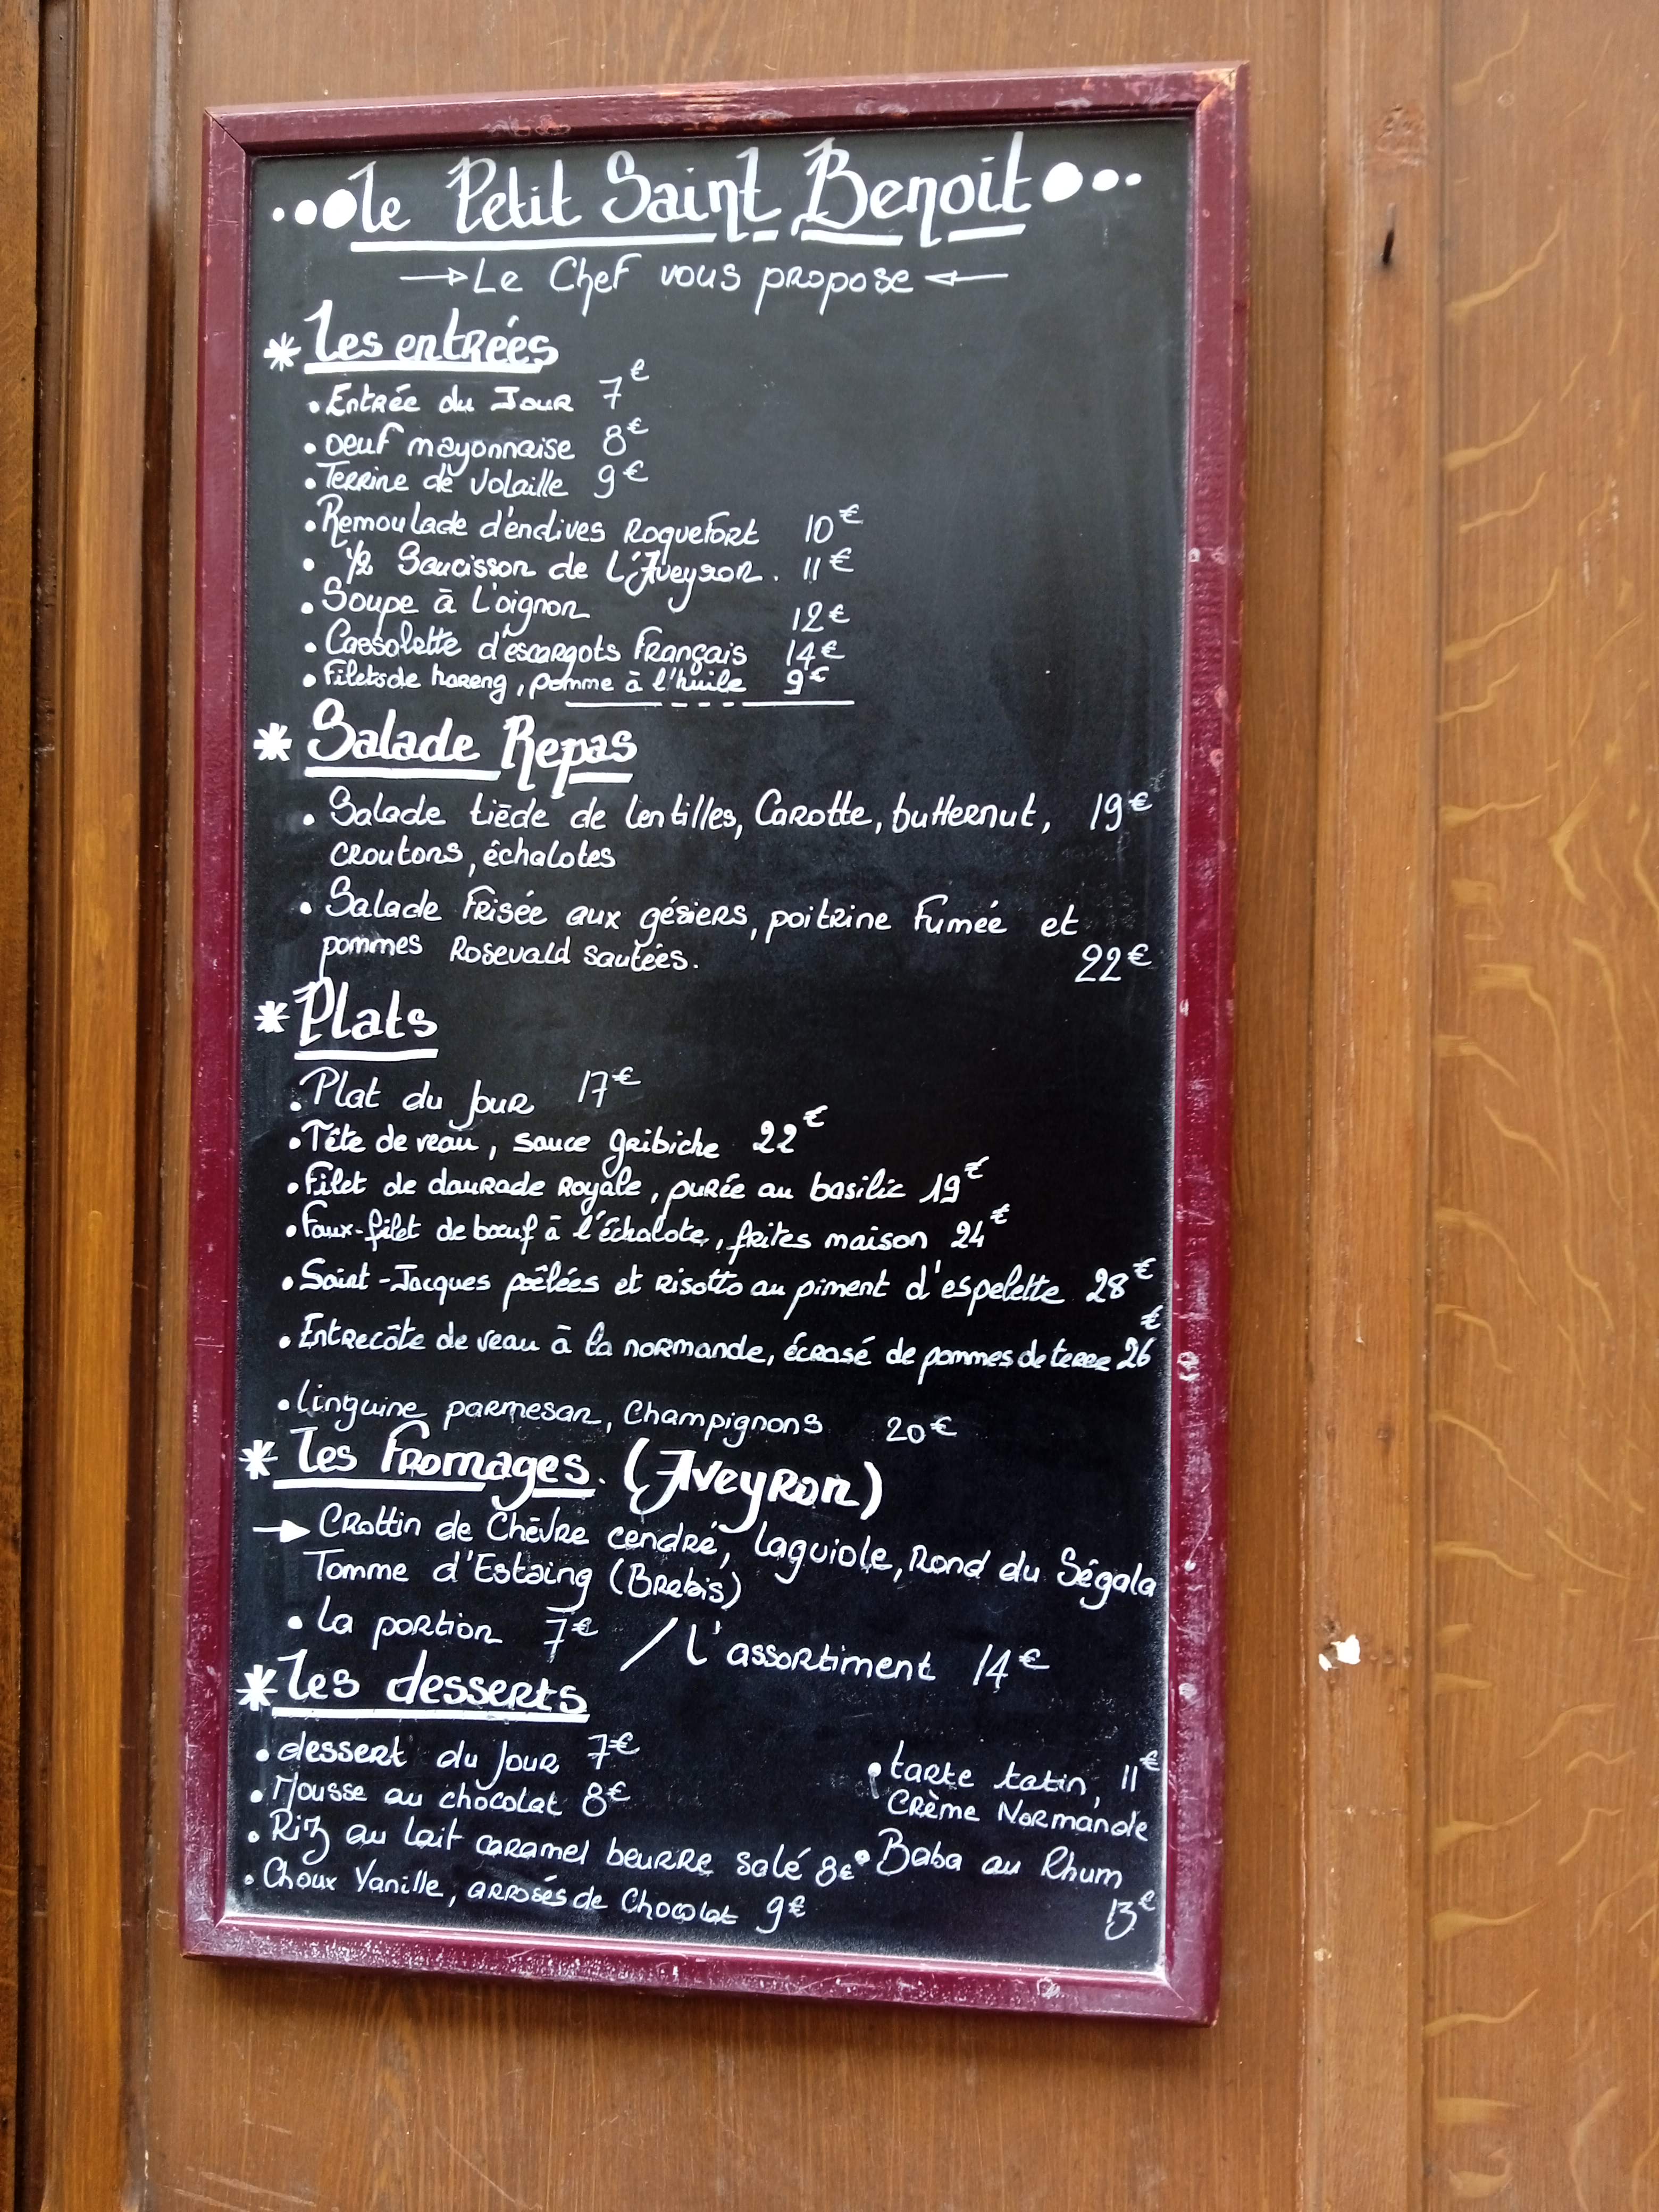 Le Petit Saint Benoit
Le Chef vous propose
* Les entrées
• Entrée du Jour 7€
• oeuf mayonnaise 8€
• Terrine de Volaille 9€
• Remoulade d'endives Roquefort 10€
• 1/2 Saucisson de L'Aveyron. 11€
• Soupe à L'oignon 12€
• Cassolette d'escargots Français 14€
• Filets de hareng, pomme à l'huile 9€
* Salade Repas
• Salade tiède de lentilles, Carotte, butternut, 19€
croutons, échalotes
• Salade Frisée aux gésiers, poitrine Fumée et
pommes Rosevald sautées. 22€
* Plats
• Plat du Jour 17€
• Tête de veau, sauce gribiche 22€
• Filet de daurade Royale, purée au basilic 19€
• Faux-filet de bœuf à l'échalote, frites maison 24€
• Saint-Jacques poêlées et risotto au piment d'espelette 28€
• Entrecôte de veau à la normande, écrasé de pommes de terre 26€
• Linguine parmesan, Champignons 20€
* Les Fromages. (Aveyron)
→ Crottin de Chèvre cendré, Laguiole, Rond du Ségala
Tomme d'Estaing (Brebis)
• La portion 7€ / L'assortiment 14€
* Les desserts
• dessert du Jour 7€
• Mousse au chocolat 8€
• Riz au lait caramel beurre salé 8€
• Choux Vanille, arrosés de Chocolat 9€
• tarte tatin, 11€
Crème Normande
• Baba au Rhum
13€